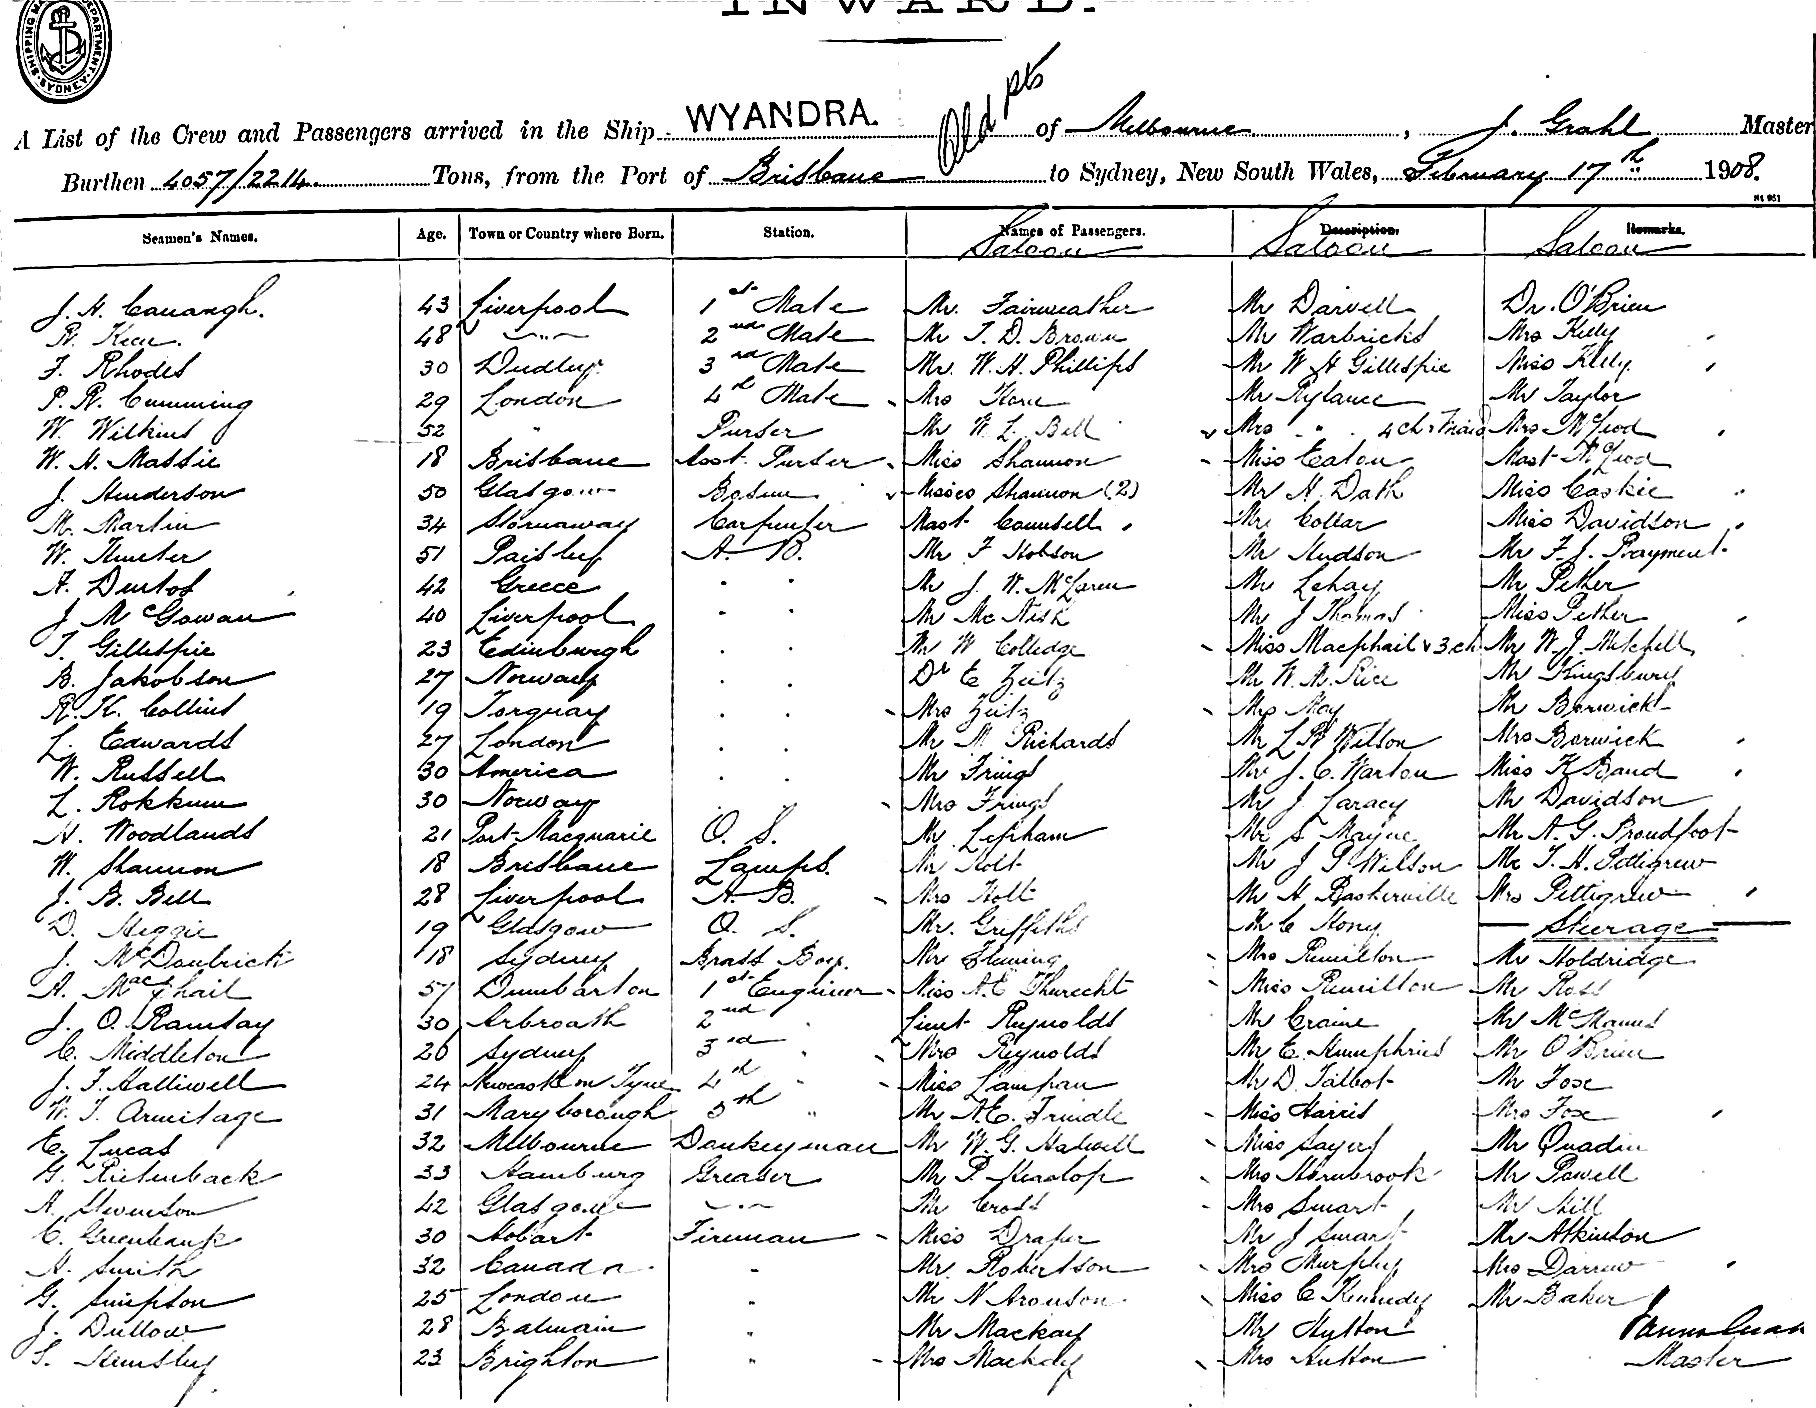 INWARD.
SHIPPING MA DEPARTMENT SYDNEY
A List of the Crew and Passengers arrived in the Ship WYANDRA. Old pts of Melbourne, J. Grahl Master
Burthen 4057/2214 Tons, from the Port of Brisbane to Sydney, New South Wales, February 17th 1908.
Seamen's Names. Age. Town or Country where Born. Station. Names of Passengers. Description. Remarks.
Saloon Saloon Saloon
J. H. Cavanagh. 43 Liverpool 1st Mate Mr. Fairweather Mr Darvell Dr. O'Brien
48 " 2nd Mate Mr T. D. Brown Mr Warbricks Mrs Kelly
F. Rhodes 30 Dudley 3rd Mate Mr. W. H. Phillips Mr W H Gillespie Miss Kelly
P. R. Cumming 29 London 4th Mate Mrs Mr Rylance Mr Taylor
W. Wilkins 52 " Purser Mr W. L. Bell Mrs " 4 ch & Maid Mrs McLeod
W. H. Massie 18 Brisbane Asst. Purser Miss Shannon Miss Eaton Mast McLeod
J. Henderson 50 Glasgow Bosun Misses Shannon (2) Mr H. Dath Miss Caskie
M. Martin 34 Stornaway Carpenter Mast Counsell Mr Collar Miss Davidson
W. Hunter 51 Paisley A. B. Mr F Hobson Mr Hudson Mr F. J. Rayment
42 Greece " " Mr J. W. McLaren Mr Lehay Mr Pether
J McGowan 40 Liverpool " " Mr McNish Mr J Thomas Miss Pether
T. Gillespie 23 Edinburgh " " Mr W Colledge Miss Macphail & 3 ch Mr W. J. Mitchell
B. Jakobson 27 Norway " " Dr E Zeitz Mr W. M. Rice Mr Kingsbury
R. K. Collins 19 Torquay " " Mrs Zeitz Mrs May Mr Berwick
L. Edwards 27 London " " Mr M Richards Mr L W Wilson Mrs Berwick
W. Russell 30 America " " Mr Frings Mr J. C. Warton Miss K Band
L. Rokkum 30 Norway Mrs Frings Mr J. Laracy Mr Davidson
H. Woodlands 21 Port Macquarie O. S. Mr Lepham Mr S Mayne Mr A. G. Proudfoot
W. Shannon 18 Brisbane Lamps. Mr Holt Mr J P Wilson Mr T. H. Pettigrew
J. B. Bell 28 Liverpool A. B. Mrs Holt Mr H Baskerville Mrs Pettigrew
D. Heggie 19 Glasgow O. S. Mr. Griffiths Mr C Hony Steerage
J. McDonbrick 18 Sydney Brass Boy. Mr Fleming Mrs Remilton Mr Holdridge
A. MacPhail 57 Dumbarton 1st Engineer Miss A. E Thurecht Miss Remilton Mr Ross
J. O. Ramsay 30 Arbroath 2nd " Lieut Reynolds Mr Craine Mr McManus
C. Middleton 26 Sydney 3rd " Mrs Reynolds Mr E. Humphries Mr O'Brien
J. F. Halliwell 24 Newcastle on Tyne 4th " Miss Lampan Mr D. Talbot Mr Fox
W. T. Armitage 31 Maryborough 5th " Mr A. E. Trindle Miss Harris Mrs Fox
E. Lucas 32 Melbourne Donkeyman Mr W. G. Halwell Miss Sayers Mr Quadin
G. Rietenback 33 Hamburg Greaser Mr P Heaslop Mrs Hornbrook Mr Powell
A. Stevenson 42 Glasgow " Mr Cross Mrs Smart Mr Hill
C. Greenbank 30 Hobart Fireman Miss Draper Mr J Smart Mr Atkinson
A. Smith 32 Canada " Mr. Robertson Mrs Murphy Mrs Darrow
G. Simpson 25 London " Mr N Aronson Miss C Kennedy Mr Baker
J. Dullow 28 Balmain " Mr Mackay Mr Hutton
S. Hemsley 23 Brighton " Mrs Mackay Mrs Hutton Master